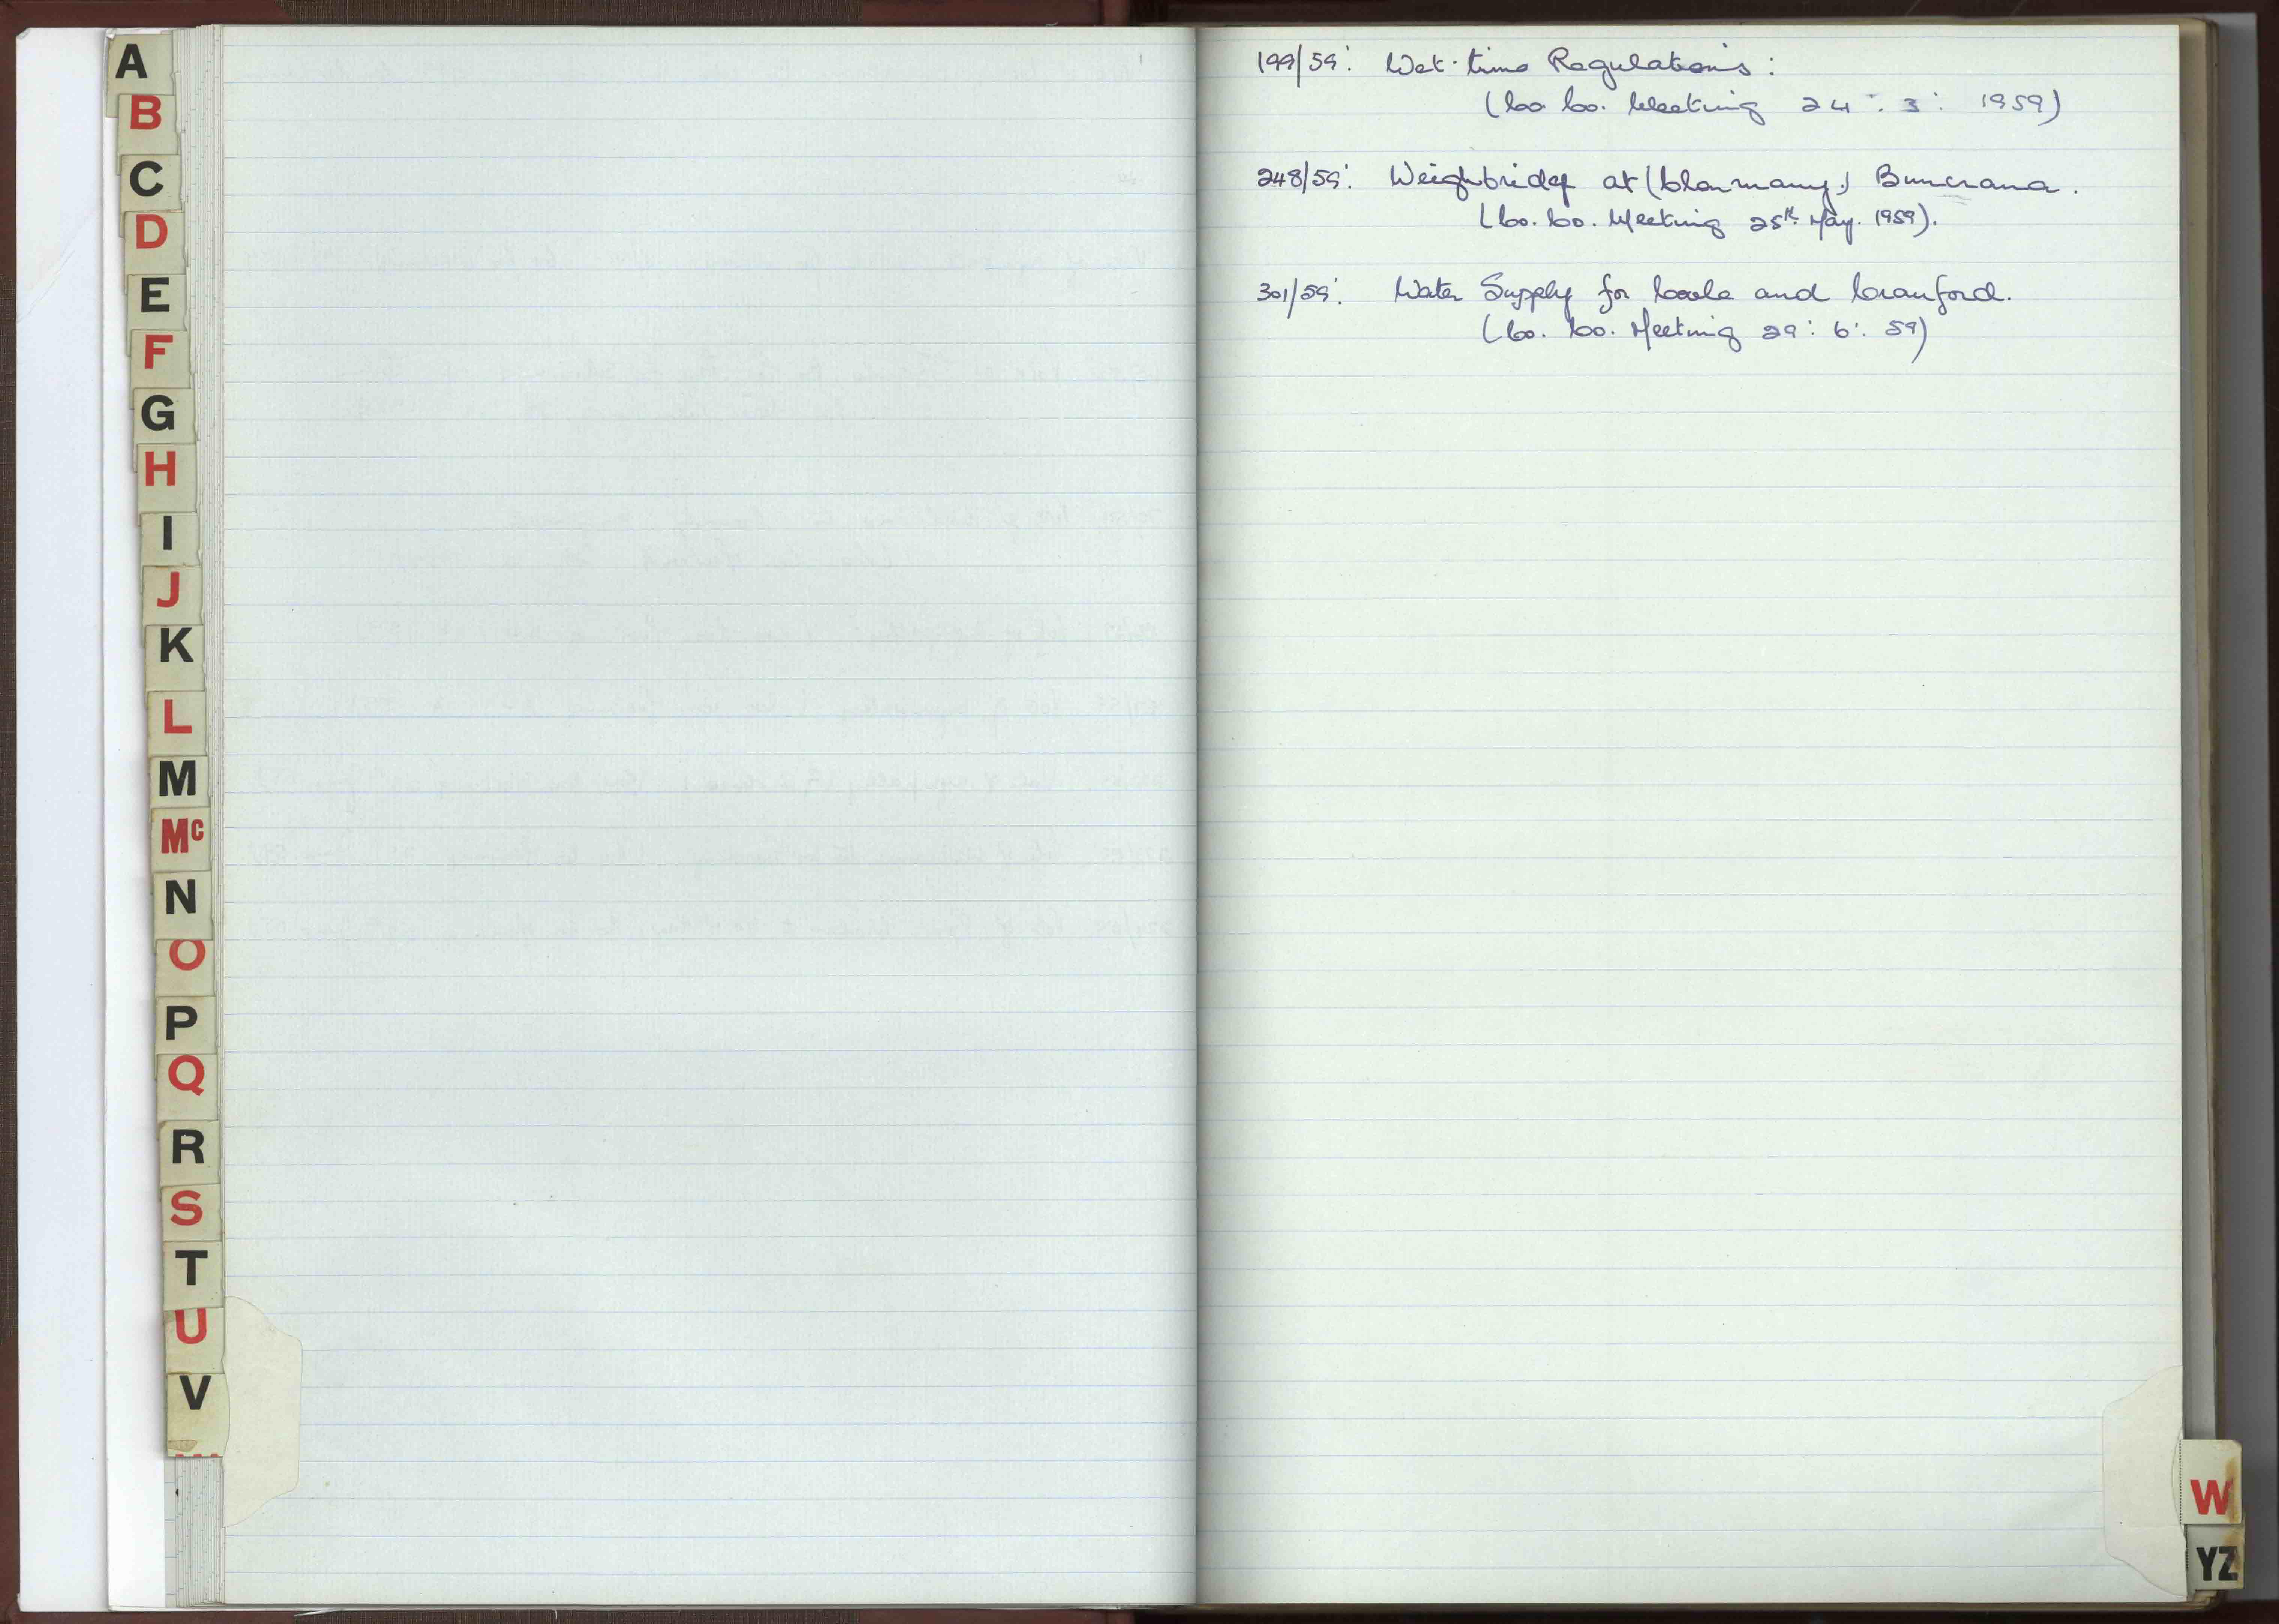 A
B
C
D
E
F
G
H
I
J
K
L
M
Mc
N
O
P
Q
R
S
T
U
V
199/59: Wet-time Regulations:
(Co. Co. Meeting 24: 3: 1959)
248/59: Weighbridge at (Clonmany) Buncrana.
(Co. Co. Meeting 25th May. 1959).
301/59: Water Supply for Coole and Cranford.
(Co. Co. Meeting 29: 6: 59)
W
YZ